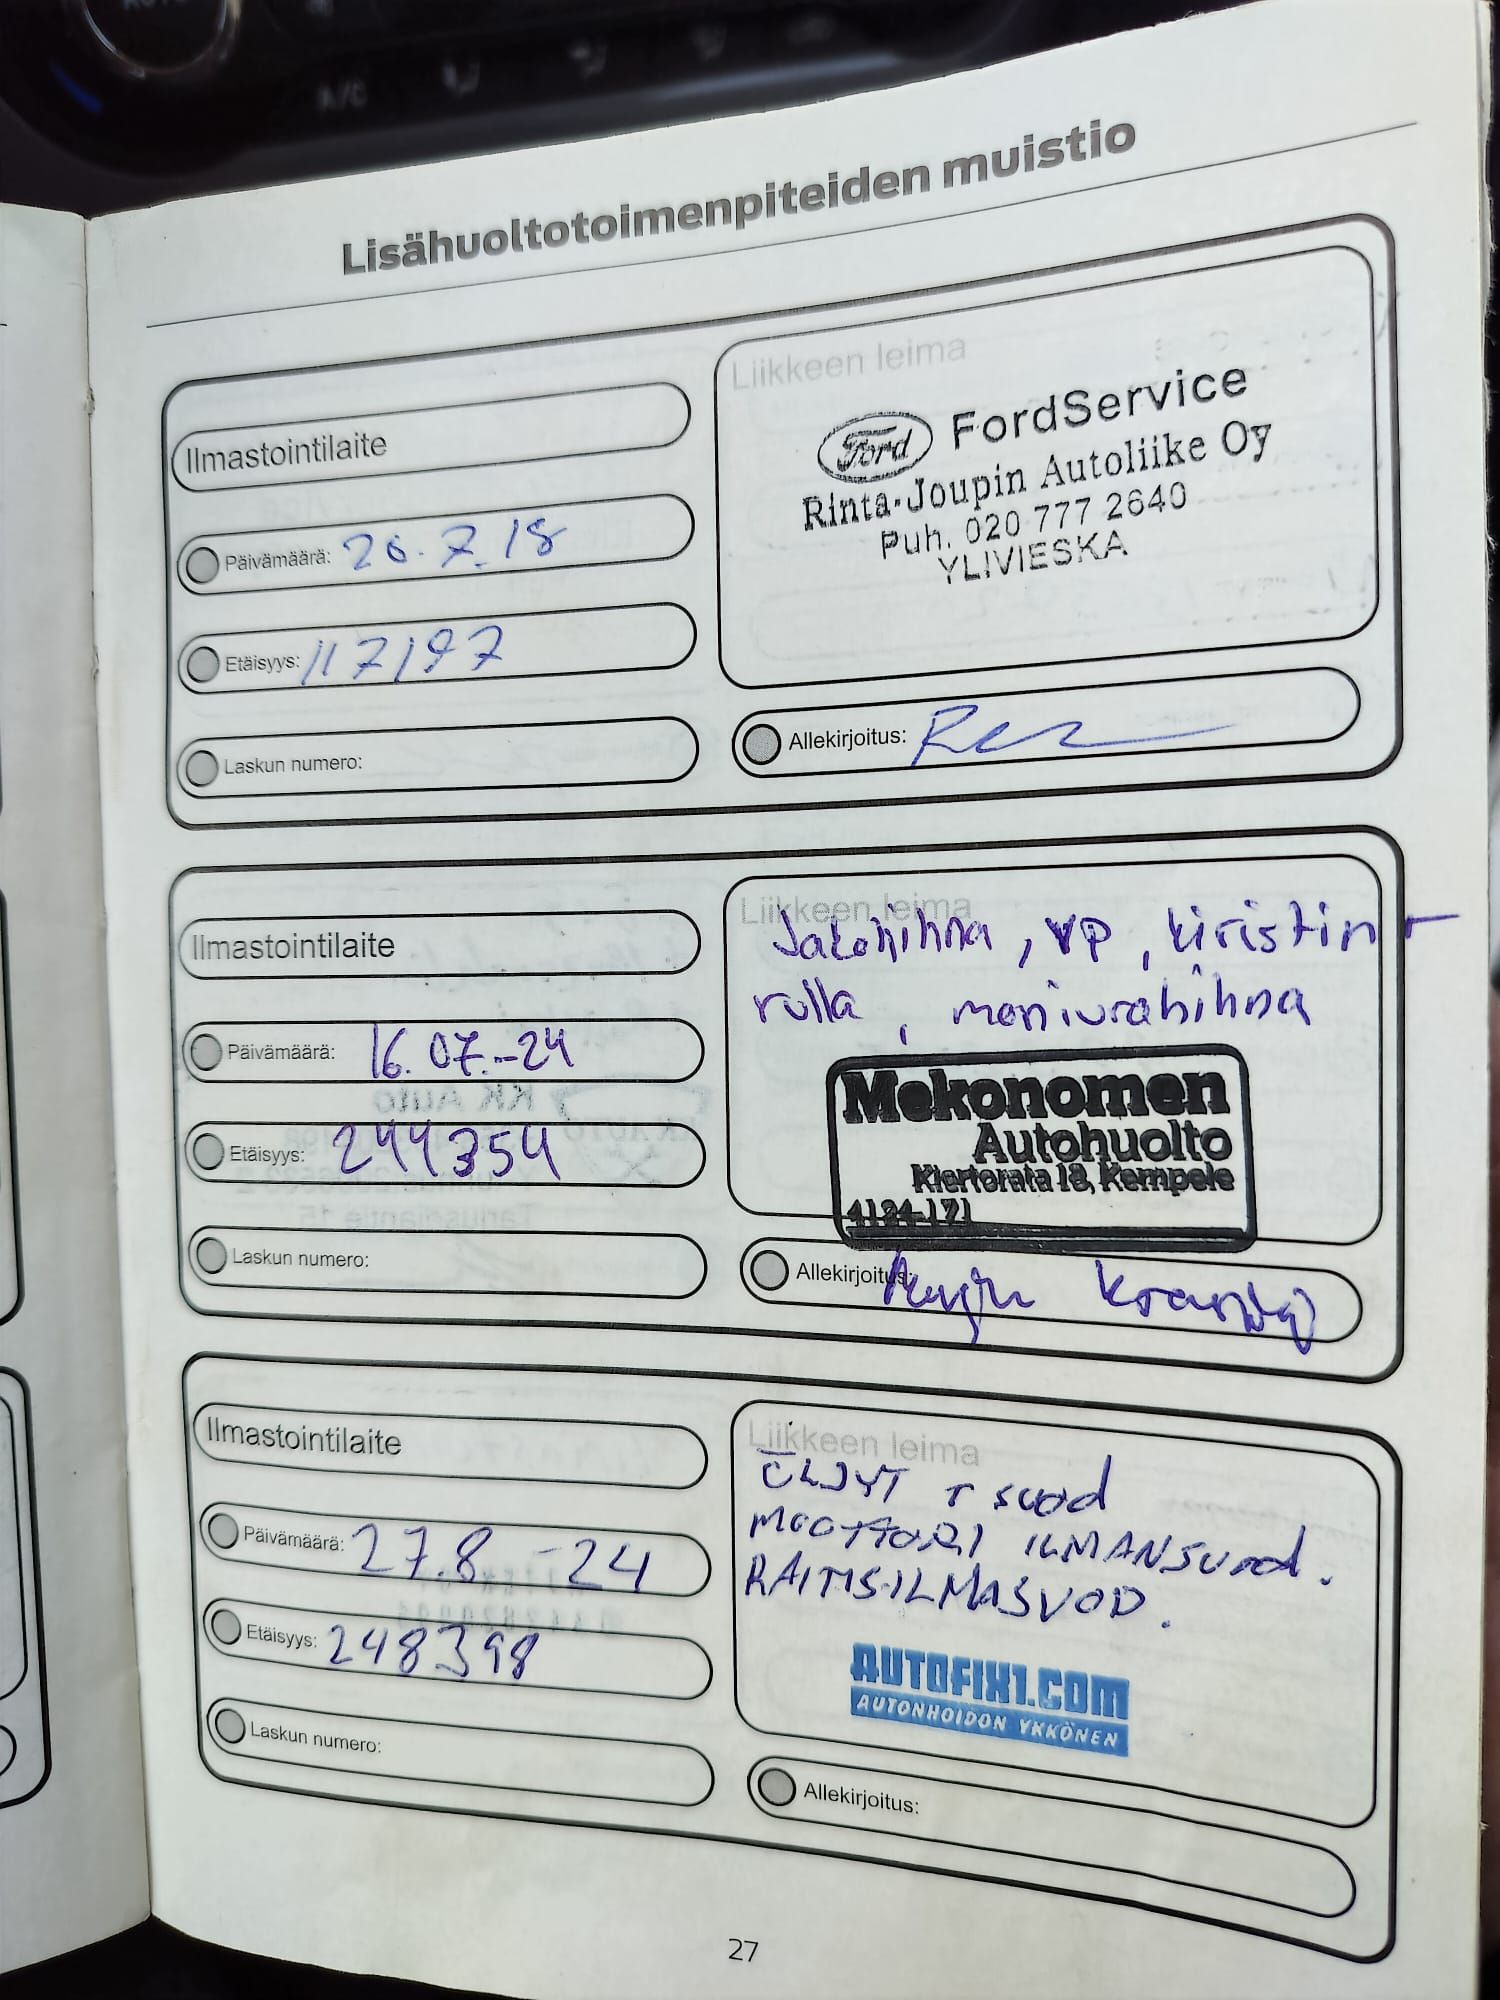 A/C
Lisähuoltotoimenpiteiden muistio
Ilmastointilaite
Päivämäärä: 26.7.18
Etäisyys: 117197
Laskun numero:
Liikkeen leima
Ford FordService
Rinta-Joupin Autoliike Oy
Puh. 020 777 2640
YLIVIESKA
Allekirjoitus:
Ilmastointilaite
Päivämäärä: 16.07.-24
Etäisyys: 244354
Laskun numero:
Liikkeen leima
Jakohihna, vp, kiristin
rulla, moniurahihna
Mekonomen
Autohuolto
Kiertorata 18, Kempele
Allekirjoitus:
Ilmastointilaite
Päivämäärä: 27.8-24
Etäisyys: 248398
Laskun numero:
Liikkeen leima
ÖLJYT + suod
MOOTTORI ILMANSUOD.
RAITISILMASUOD.
AUTOFIX1.COM
AUTONHOIDON YKKÖNEN
Allekirjoitus:
27